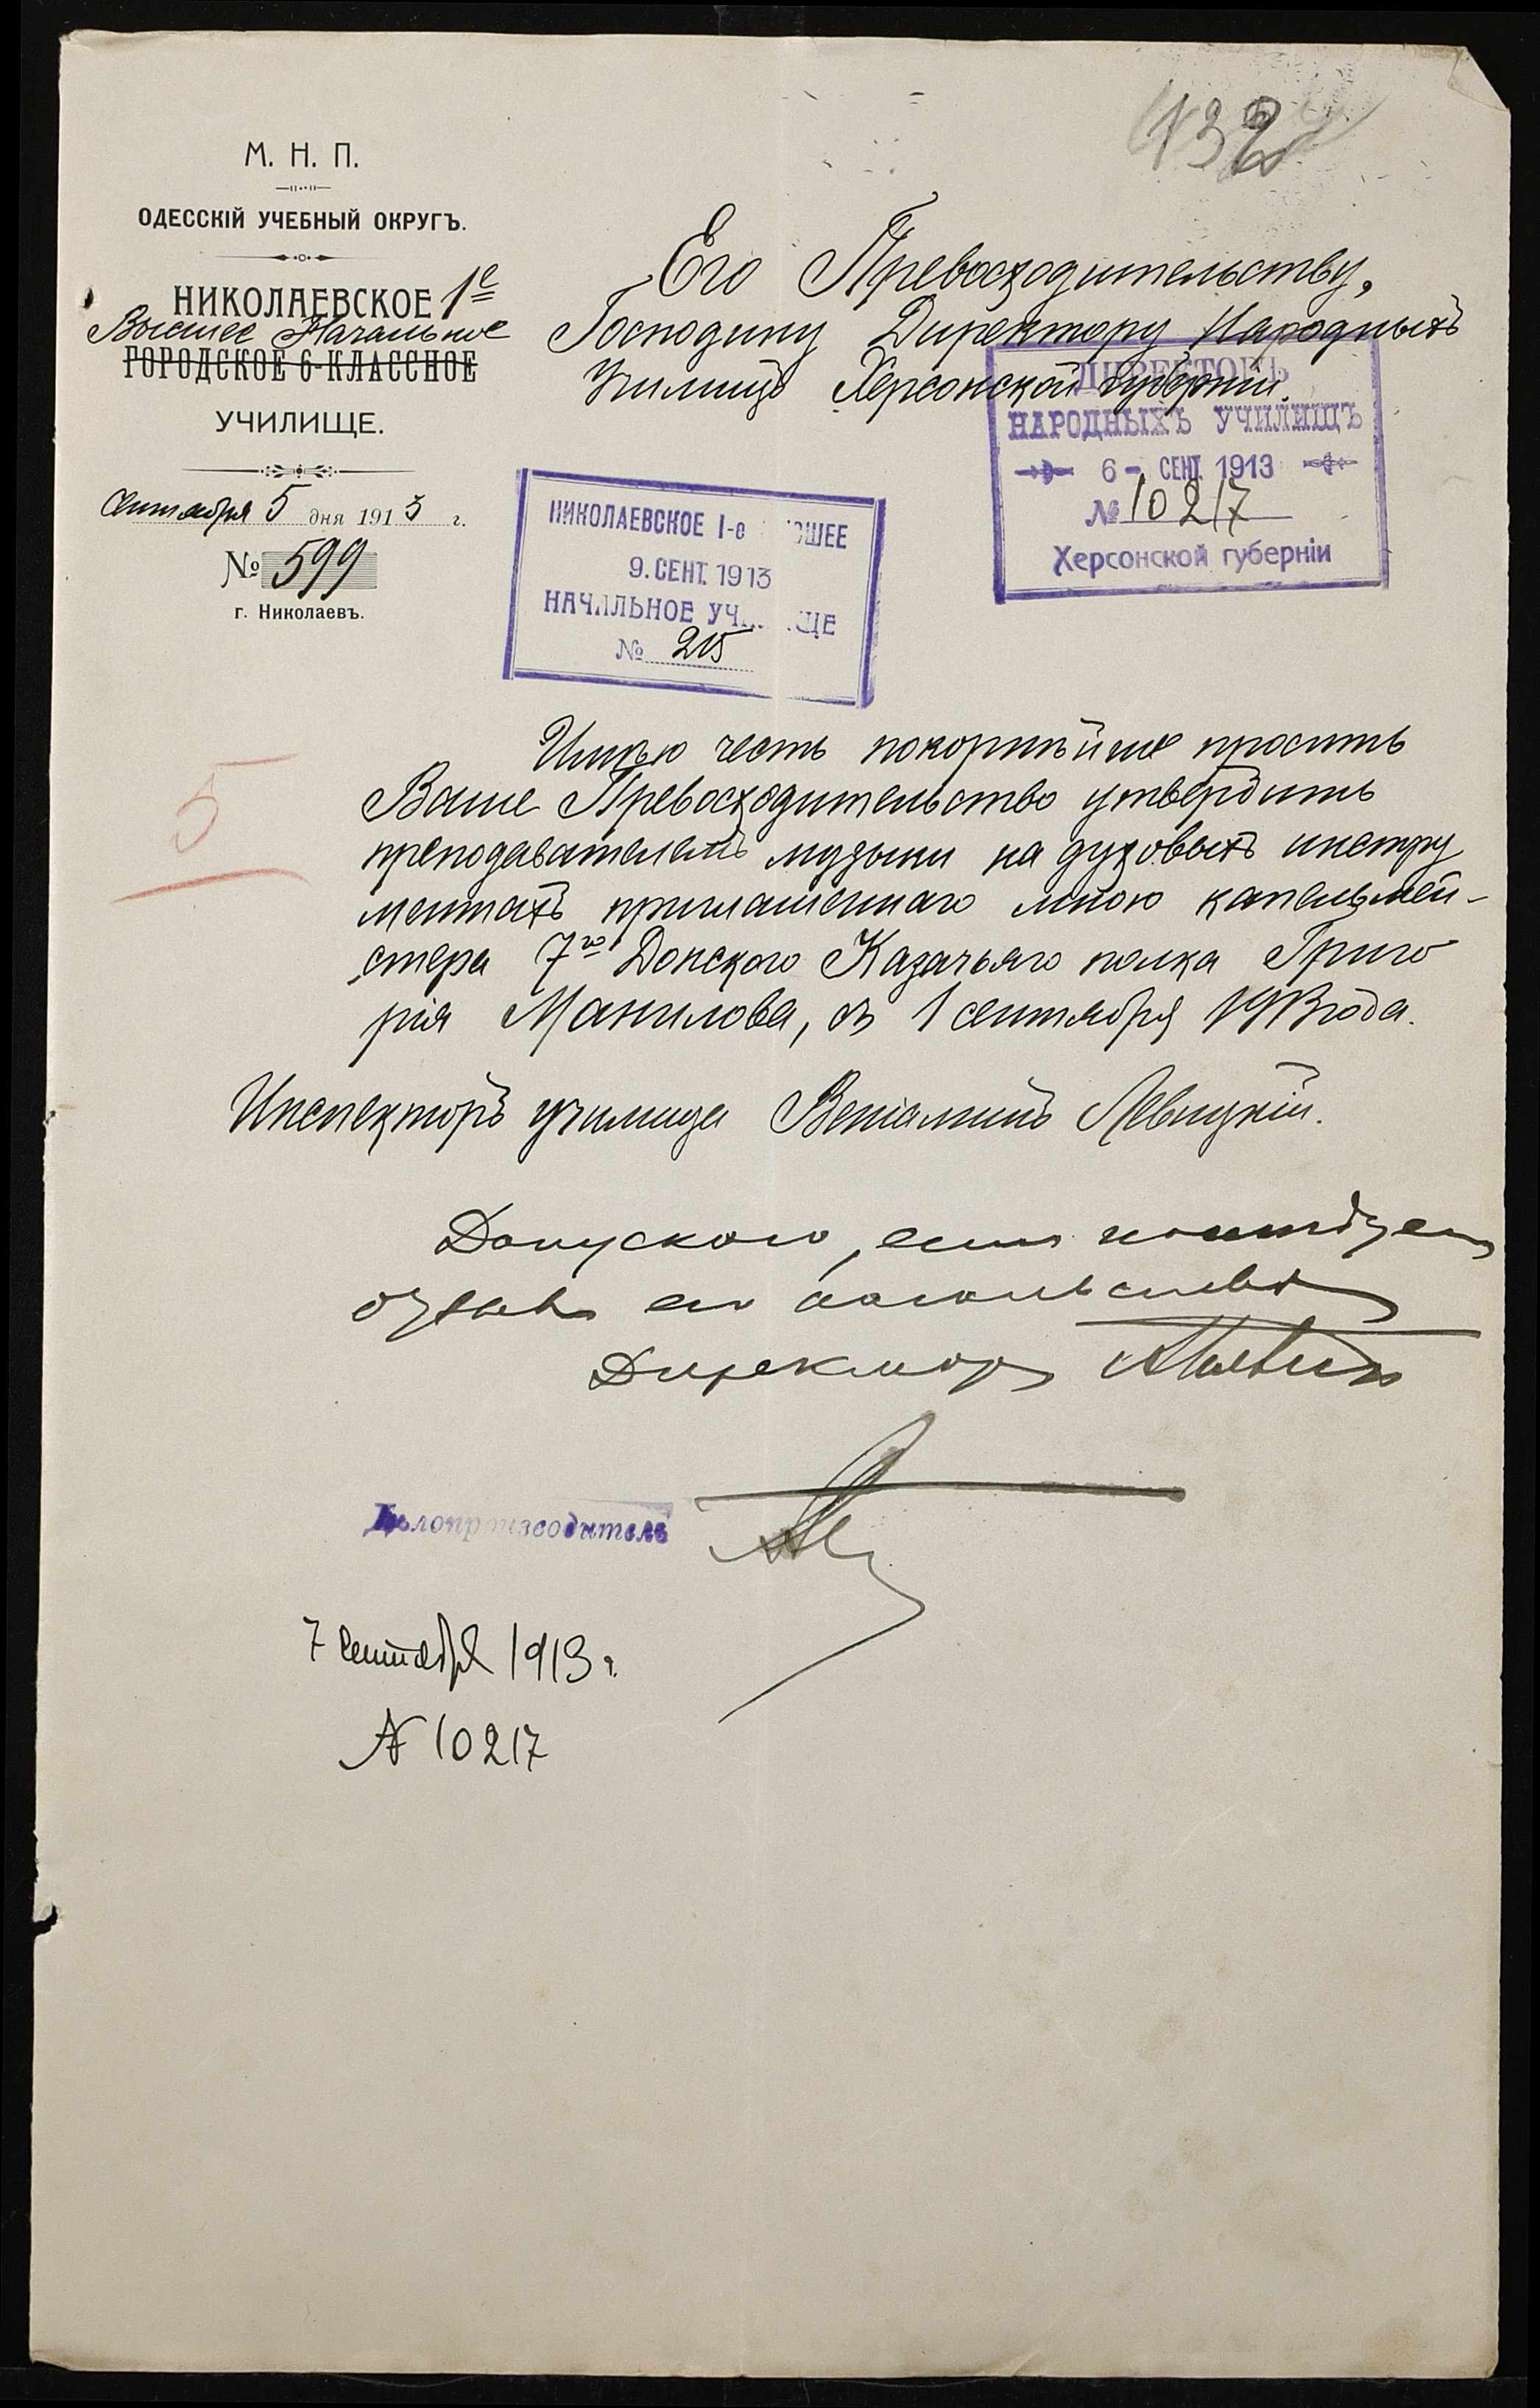 132
М. Н. П.
ОДЕССКІЙ УЧЕБНЫЙ ОКРУГЪ.
НИКОЛАЕВСКОЕ 1е
Высшее Начальное
ГОРОДСКОЕ 6-КЛАССНОЕ
УЧИЛИЩЕ.
Сентября 5 дня 1913 г.
№ 599
г. Николаевъ.
Его Превосходительству,
Господину Директору Народныхъ
Училищъ Херсонской губерніи.
ДИРЕКТОРЪ
НАРОДНЫХЪ УЧИЛИЩЪ
6 - СЕНТ. 1913
№ 10217
Херсонской губерніи
НИКОЛАЕВСКОЕ I-е ВЫСШЕЕ
9. СЕНТ. 1913
НАЧАЛЬНОЕ УЧИЛИЩЕ
№ 215
5
Имѣю честь покорнѣйше просить
Ваше Превосходительство утвердить
преподавателемъ музыки на духовыхъ инстру
ментахъ приглашеннаго мною капельмей-
стера 7го Донского Казачьяго полка Григо
рія Манилова, съ 1 сентября 1913 года.
Инспекторъ училища Веніаминъ Левицкій.
Допускаю, если
его
Директоръ
Дѣлопроизводитель
7 сентября 1913 г.
№ 10217